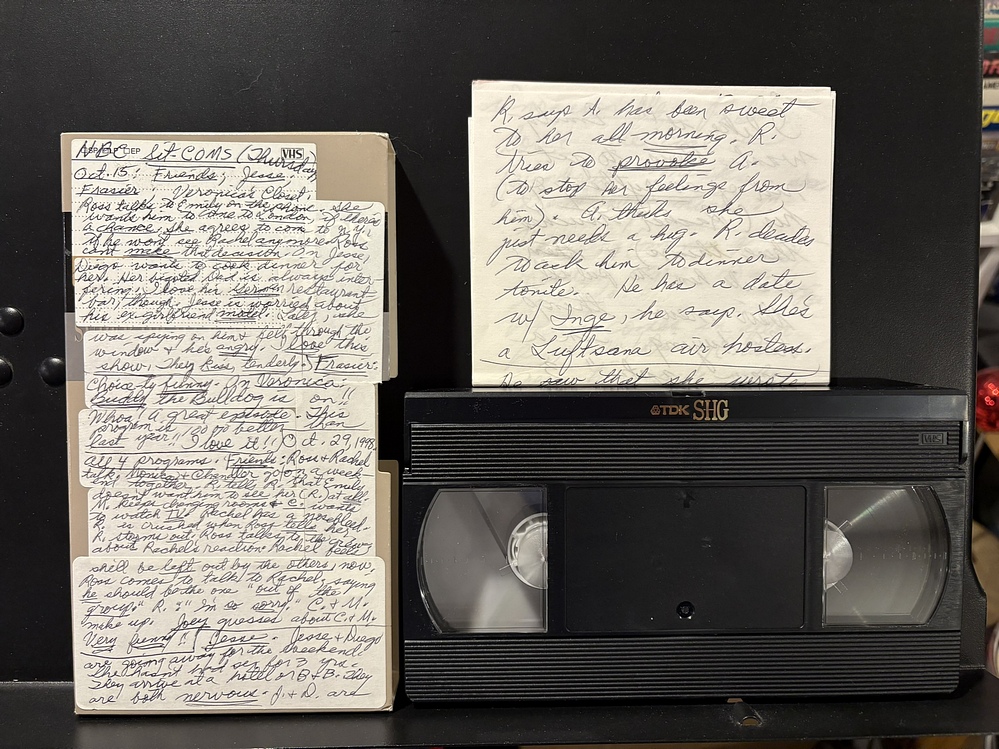 NBC Sit-COMS (Thursday
VHS
Oct. 15: Friends; Jesse;
Frasier; Veronica's Closet.
Ross talks to Emily on the phone. She
wants him to come to London. If there's
a chance, she agrees to come to N.Y.
if he wont see Rachel anymore. Ross
cant make that decision. On Jesse,
Diego wants to cook dinner for
her. Her bigoted Dad is always inter-
fering. I love his German restaurant
bar, though. Jesse is worried about
his ex-girlfriend model. Later, she
was spying on him & fell through the
window & he's angry. I love this
show. They kiss, tenderly. Frasier:
Choice ty funny. On Veronica:
Bucky the Bulldog is on!!
Whoa! A great episode. This
program is 100% better than
last year!! I love it!! Oct. 29, 1998
all 4 programs. Friends: Ross & Rachel
talk. Monica & Chandler go on a week-
end together. R. tells R. that Emily
doesn't want him to see her (R.) at all.
M. keeps changing rooms & C. wants
to watch TV. Rachel has a nosebleed.
R. is crushed when Ross tells her.
R. storms out. Ross talks to the crowd
about Rachel's reaction. Rachel feels
shell be left out by the others, now.
Ross comes to talk to Rachel, saying
he should be the one "out of the
group." R.: "I'm so sorry." C. & M.
make up. Joey guesses about C. & M.
Very funny!! Jesse. Jesse & Diego
are going away for the weekend.
She hasn't had sex for 3 yrs.
They arrive at a hotel or B & B. They
are both nervous. J. & D. are
R. says A. has been sweet
to her all morning. R.
tries to provoke A.
(to stop her feelings from
him). A. thinks she
just needs a hug. R. decides
to ask him to dinner
tonite. He has a date
w/ Inge, he says. She's
a Luftsana air hostess.
saw that she wrote
TDK SHG
VHS